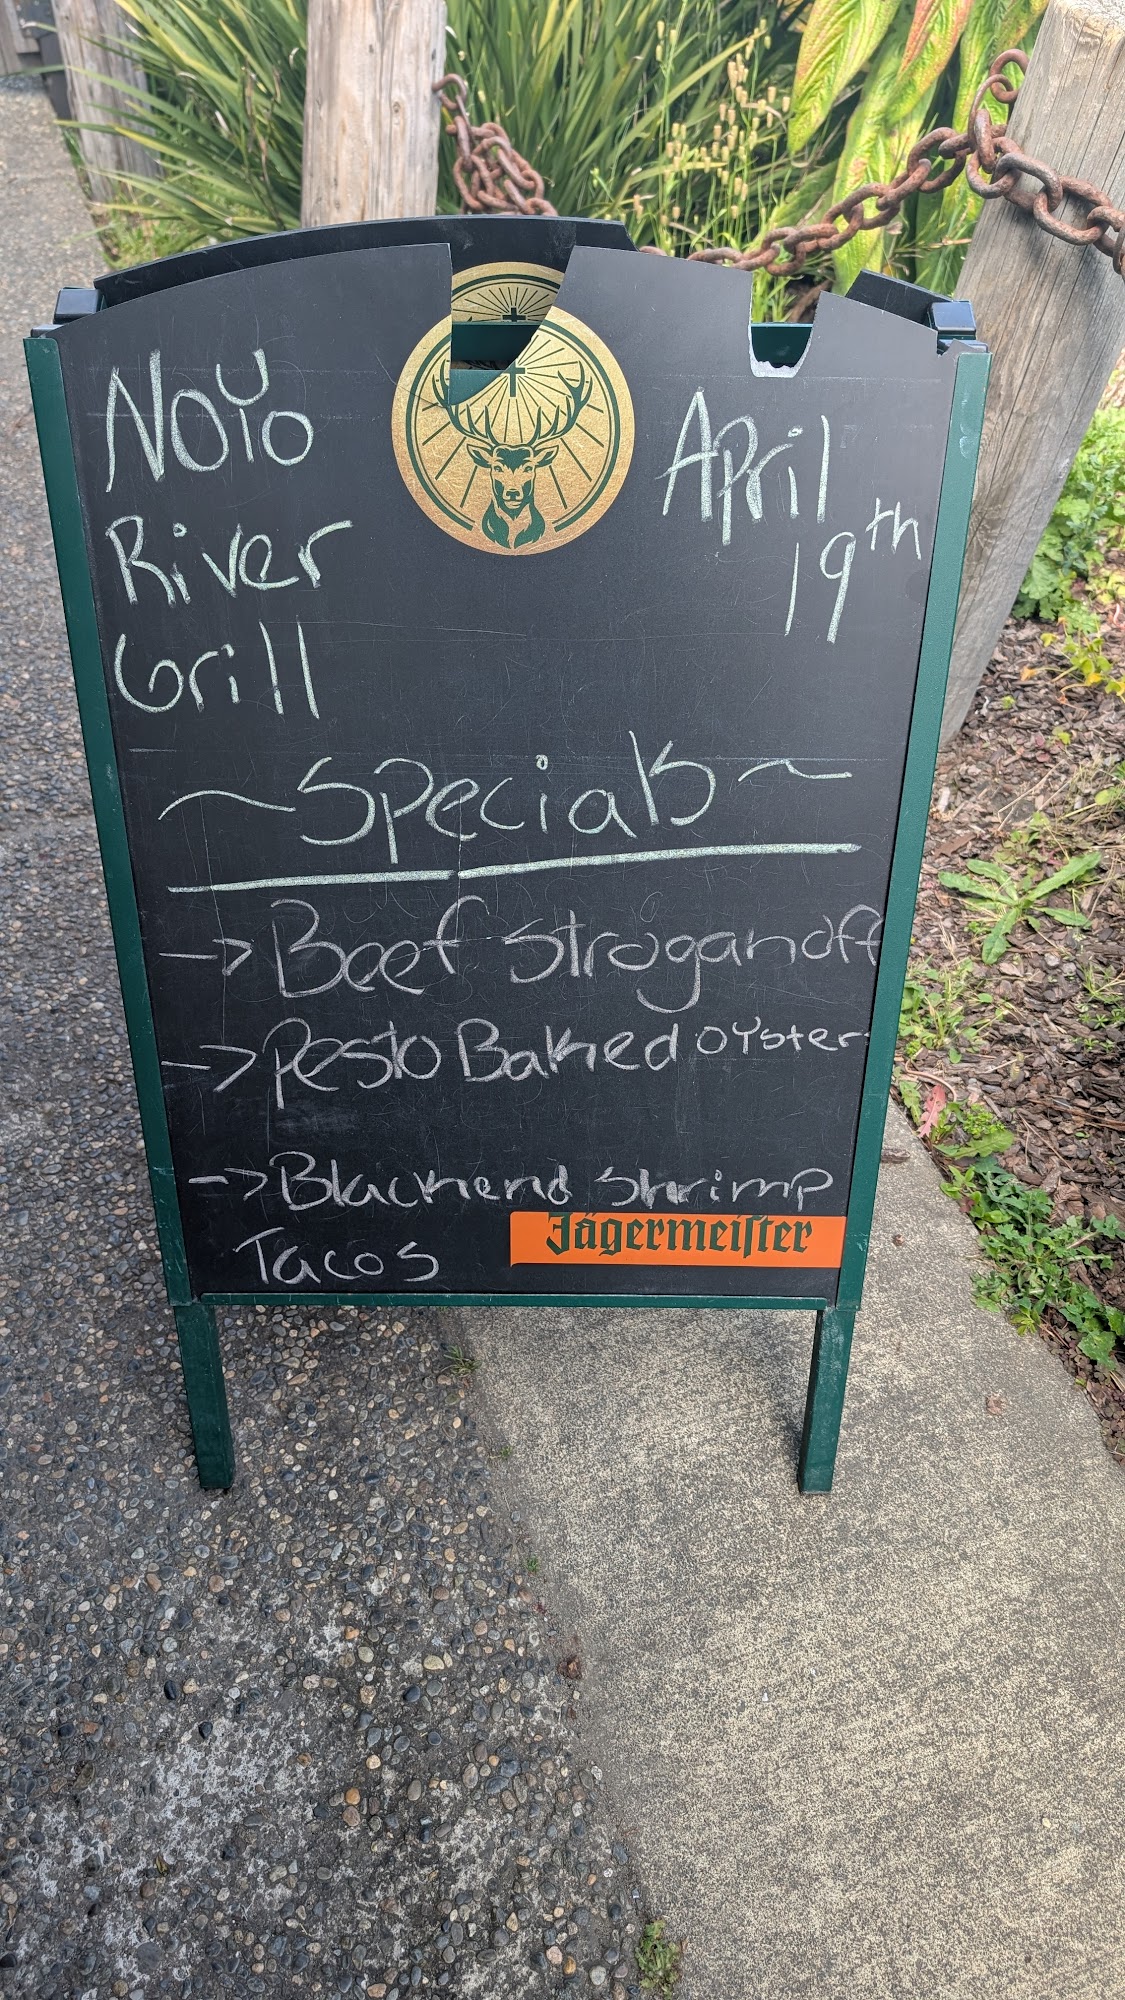 Noyo
River
Grill
April
19th
~Specials~
-> Beef Stroganoff
-> Pesto Baked oyster
-> Blackend Shrimp
Tacos
Jägermeiſter